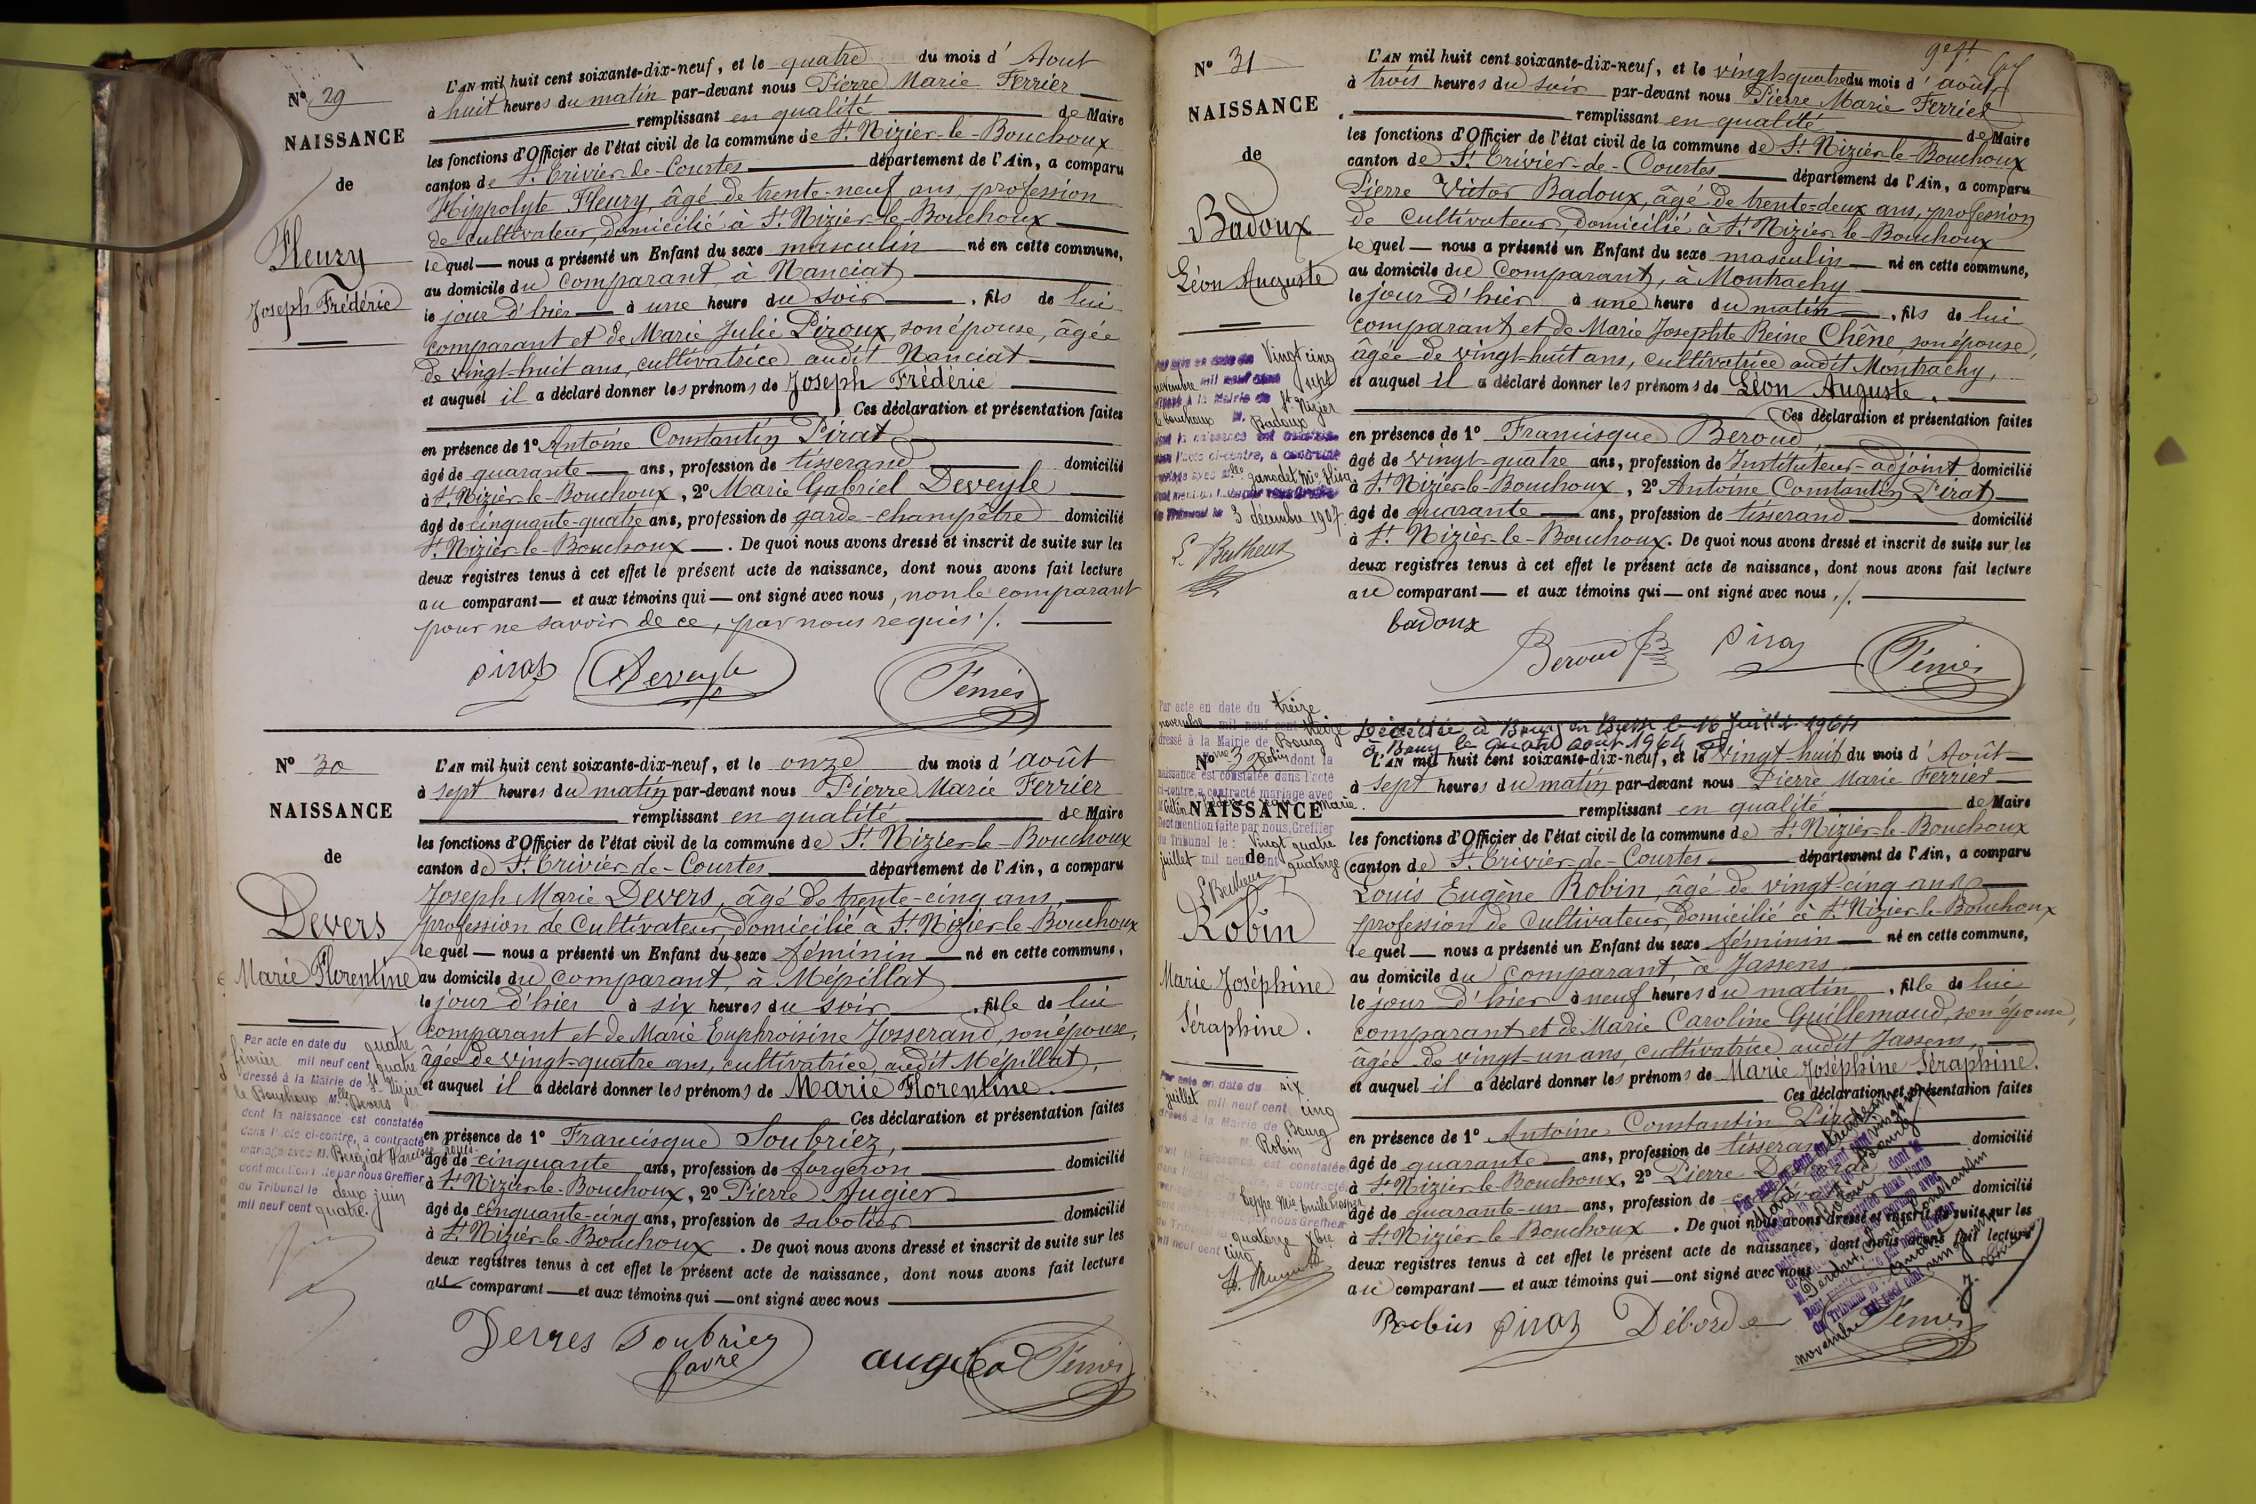 N° 29
NAISSANCE
de
Fleury
Joseph Frédéric
L'AN mil huit cent soixante-dix-neuf, et le quatre du mois d'Aout
à huit heures du matin par-devant nous Pierre Marie Ferrier
remplissant en qualité de Maire
les fonctions d'Officier de l'état civil de la commune de St Nizier-le-Bouchoux
canton de St Trivier-de-Courtes département de l'Ain, a comparu
Hippolyte Fleury, âgé de trente-neuf ans, profession
de cultivateur, domicilié à St Nizier-le-Bouchoux
lequel nous a présenté un Enfant du sexe masculin né en cette commune,
au domicile du comparant, à Nanciat
le jour d'hier à une heure du soir, fils de lui
comparant et de Marie Julie Piroux, son épouse, âgée
de vingt-huit ans, cultivatrice audit Nanciat
et auquel il a déclaré donner les prénoms de Joseph Frédéric
Ces déclaration et présentation faites
en présence de 1° Antoine Constantin Pirat
âgé de quarante ans, profession de tisserand domicilié
à St Nizier-le-Bouchoux, 2° Marie Gabriel Deveyle
âgé de cinquante-quatre ans, profession de garde-champêtre domicilié
St Nizier-le-Bouchoux. De quoi nous avons dressé et inscrit de suite sur les
deux registres tenus à cet effet le présent acte de naissance, dont nous avons fait lecture
au comparant et aux témoins qui ont signé avec nous, non le comparant
pour ne savoir de ce, par nous requis ./.
Pirat Deveyle Ferrier
N° 30
NAISSANCE
de
Devers
Marie Florentine
Par acte en date du quatre
février mil neuf cent quatre
dressé à la Mairie de St Nizier
le Bouchoux Mlle Devers
dont la naissance est constatée
dans l'acte ci-contre, a contracté
mariage avec M. Berziat Narcisse
dont mention faite par nous Greffier
du Tribunal le deux juin
mil neuf cent quatre.
L'AN mil huit cent soixante-dix-neuf, et le onze du mois d'août
à sept heures du matin par-devant nous Pierre Marie Ferrier
remplissant en qualité de Maire
les fonctions d'Officier de l'état civil de la commune de St Nizier-le-Bouchoux
canton de St Trivier-de-Courtes département de l'Ain, a comparu
Joseph Marie Devers, âgé de trente-cinq ans,
profession de cultivateur, domicilié à St Nizier-le-Bouchoux
lequel nous a présenté un Enfant du sexe féminin né en cette commune,
au domicile du comparant, à Mépillat
le jour d'hier à six heures du soir, fille de lui
comparant et de Marie Euphroisine Josserand, son épouse,
âgée de vingt-quatre ans, cultivatrice, audit Mépillat,
et auquel il a déclaré donner les prénoms de Marie Florentine.
Ces déclaration et présentation faites
en présence de 1° Francisque Soubriez,
âgé de cinquante ans, profession de forgeron domicilié
à St Nizier-le-Bouchoux, 2° Pierre Augier
âgé de cinquante-cinq ans, profession de sabotier domicilié
à St Nizier-le-Bouchoux. De quoi nous avons dressé et inscrit de suite sur les
deux registres tenus à cet effet le présent acte de naissance, dont nous avons fait lecture
au comparant et aux témoins qui ont signé avec nous
Devres Soubriez
favre
augier Ferrier
N° 31
NAISSANCE
de
Badoux
Léon Auguste
Vingt cinq
novembre mil neuf cent sept
dressé à la Mairie de St Nizier
le Bouchoux M. Badoux
dont la naissance est constatée
dans l'acte ci-contre, a contracté
mariage avec Mlle Janodet Mie Elisa
du Tribunal le 3 décembre 1907.
L. Bertheux
L'AN mil huit cent soixante-dix-neuf, et le vingt-quatre du mois d'août
à trois heures du soir par-devant nous Pierre Marie Ferrier
remplissant en qualité de Maire
les fonctions d'Officier de l'état civil de la commune de St Nizier-le-Bouchoux
canton de St Trivier-de-Courtes département de l'Ain, a comparu
Pierre Victor Badoux, âgé de trente-deux ans, profession
de cultivateur, domicilié à St Nizier-le-Bouchoux
lequel nous a présenté un Enfant du sexe masculin né en cette commune,
au domicile du comparant, à Montrachy
le jour d'hier à une heure du matin, fils de lui
comparant et de Marie Josephte Reine Chêne, son épouse,
âgée de vingt-huit ans, cultivatrice audit Montrachy,
et auquel il a déclaré donner les prénoms de Léon Auguste.
Ces déclaration et présentation faites
en présence de 1° Francisque Beroud,
âgé de vingt-quatre ans, profession de Instituteur-adjoint domicilié
à St Nizier-le-Bouchoux, 2° Antoine Constantin Pirat
âgé de quarante ans, profession de tisserand domicilié
à St Nizier-le-Bouchoux. De quoi nous avons dressé et inscrit de suite sur les
deux registres tenus à cet effet le présent acte de naissance, dont nous avons fait lecture
au comparant et aux témoins qui ont signé avec nous ./.
badoux
Beroud Pirat Ferrier
Par acte en date du treize
novembre mil neuf cent treize
dressé à la Mairie de Bourg
Robin dont la
naissance est constatée dans l'acte
ci-contre, a contracté mariage avec
Dont mention faite par nous, Greffier
du Tribunal le: Vingt quatre
juillet mil neuf cent quatorze
L. Bertheux
Décédée à Bourg en Bresse le 16 Juillet 1964
à Bourg le quatre aout 1964
N° 32
NAISSANCE
de
Robin
Marie Joséphine
Séraphine.
Par acte en date du six
juillet mil neuf cent cinq
dressé à la Mairie de Bourg
M. Robin
dont la naissance est constatée
par nous Greffier
quatorze xbre
mil neuf cent cinq
L'AN mil huit cent soixante-dix-neuf, et le vingt-huit du mois d'Août
à sept heures du matin par-devant nous Pierre Marie Ferrier
remplissant en qualité de Maire
les fonctions d'Officier de l'état civil de la commune de St Nizier-le-Bouchoux
canton de St Trivier-de-Courtes département de l'Ain, a comparu
Louis Eugène Robin, âgé de vingt-cinq ans
profession de cultivateur, domicilié à St Nizier-le-Bouchoux
lequel nous a présenté un Enfant du sexe féminin né en cette commune,
au domicile du comparant, à Jassens
le jour d'hier à neuf heures du matin, fille de lui
comparant et de Marie Caroline Guillemaud, son épouse,
âgée de vingt-un ans, cultivatrice audit Jassens,
et auquel il a déclaré donner les prénoms de Marie Joséphine Séraphine.
Ces déclaration et présentation faites
en présence de 1° Antoine Constantin Pirat
âgé de quarante ans, profession de tisserand domicilié
à St Nizier-le-Bouchoux, 2° Pierre
âgé de quarante-un ans, profession de domicilié
à St Nizier-le-Bouchoux. De quoi nous avons dressé et inscrit de suite sur les
deux registres tenus à cet effet le présent acte de naissance, dont nous avons fait lecture
au comparant et aux témoins qui ont signé avec nous
Robin Pirat Déborde Ferrier